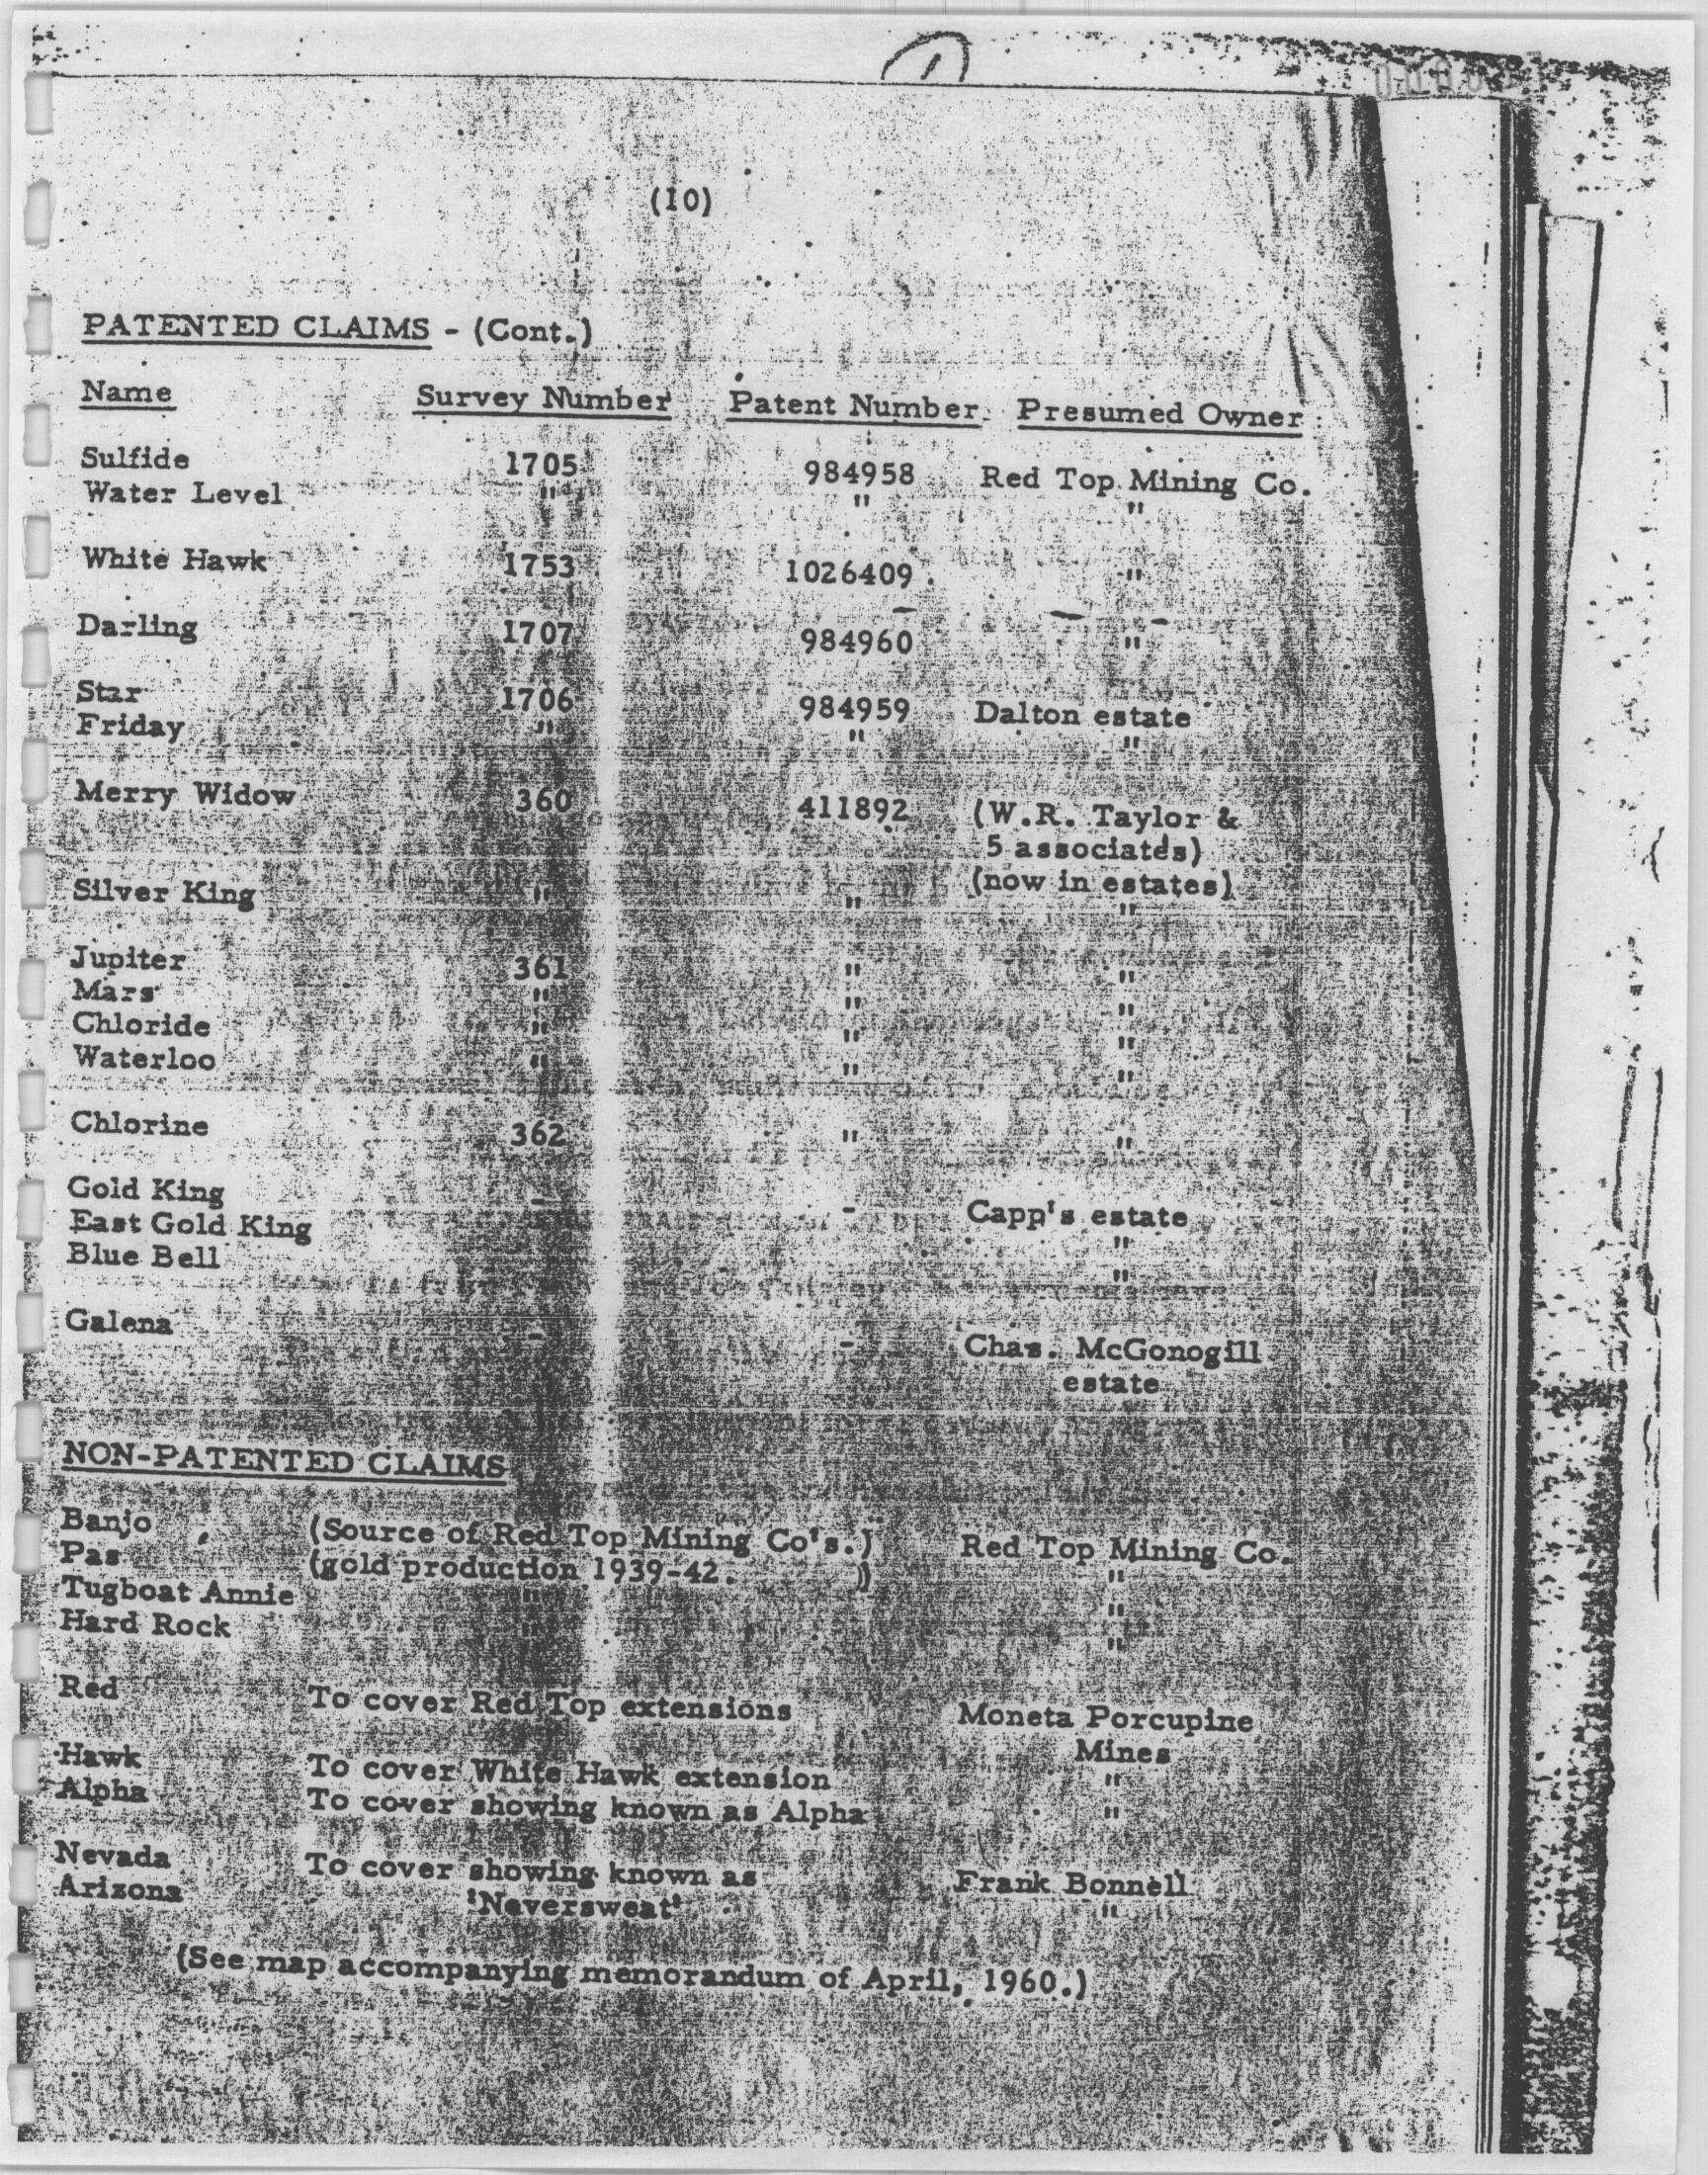 (10)
PATENTED CLAIMS - (Cont.)
Name Survey Number Patent Number Presumed Owner
Sulfide 1705 984958 Red Top Mining Co.
Water Level " " "
White Hawk 1753 1026409 "
Darling 1707 984960 "
Star 1706 984959 Dalton estate
Friday " " "
Merry Widow 360 411892 (W.R. Taylor &
5 associates)
(now in estates)
Silver King " " "
Jupiter 361 " "
Mars " " "
Chloride " " "
Waterloo " " "
Chlorine 362 " "
Gold King - - Capp's estate
East Gold King "
Blue Bell "
Galena - - Chas. McGonogill
estate
NON-PATENTED CLAIMS
Banjo (Source of Red Top Mining Co's.) Red Top Mining Co.
Pas (gold production 1939-42. ) "
Tugboat Annie " "
Hard Rock " "
Red To cover Red Top extensions Moneta Porcupine
Mines
Hawk To cover White Hawk extension "
Alpha To cover showing known as Alpha "
Nevada To cover showing known as Frank Bonnell
Arizona 'Neversweat' "
(See map accompanying memorandum of April, 1960.)